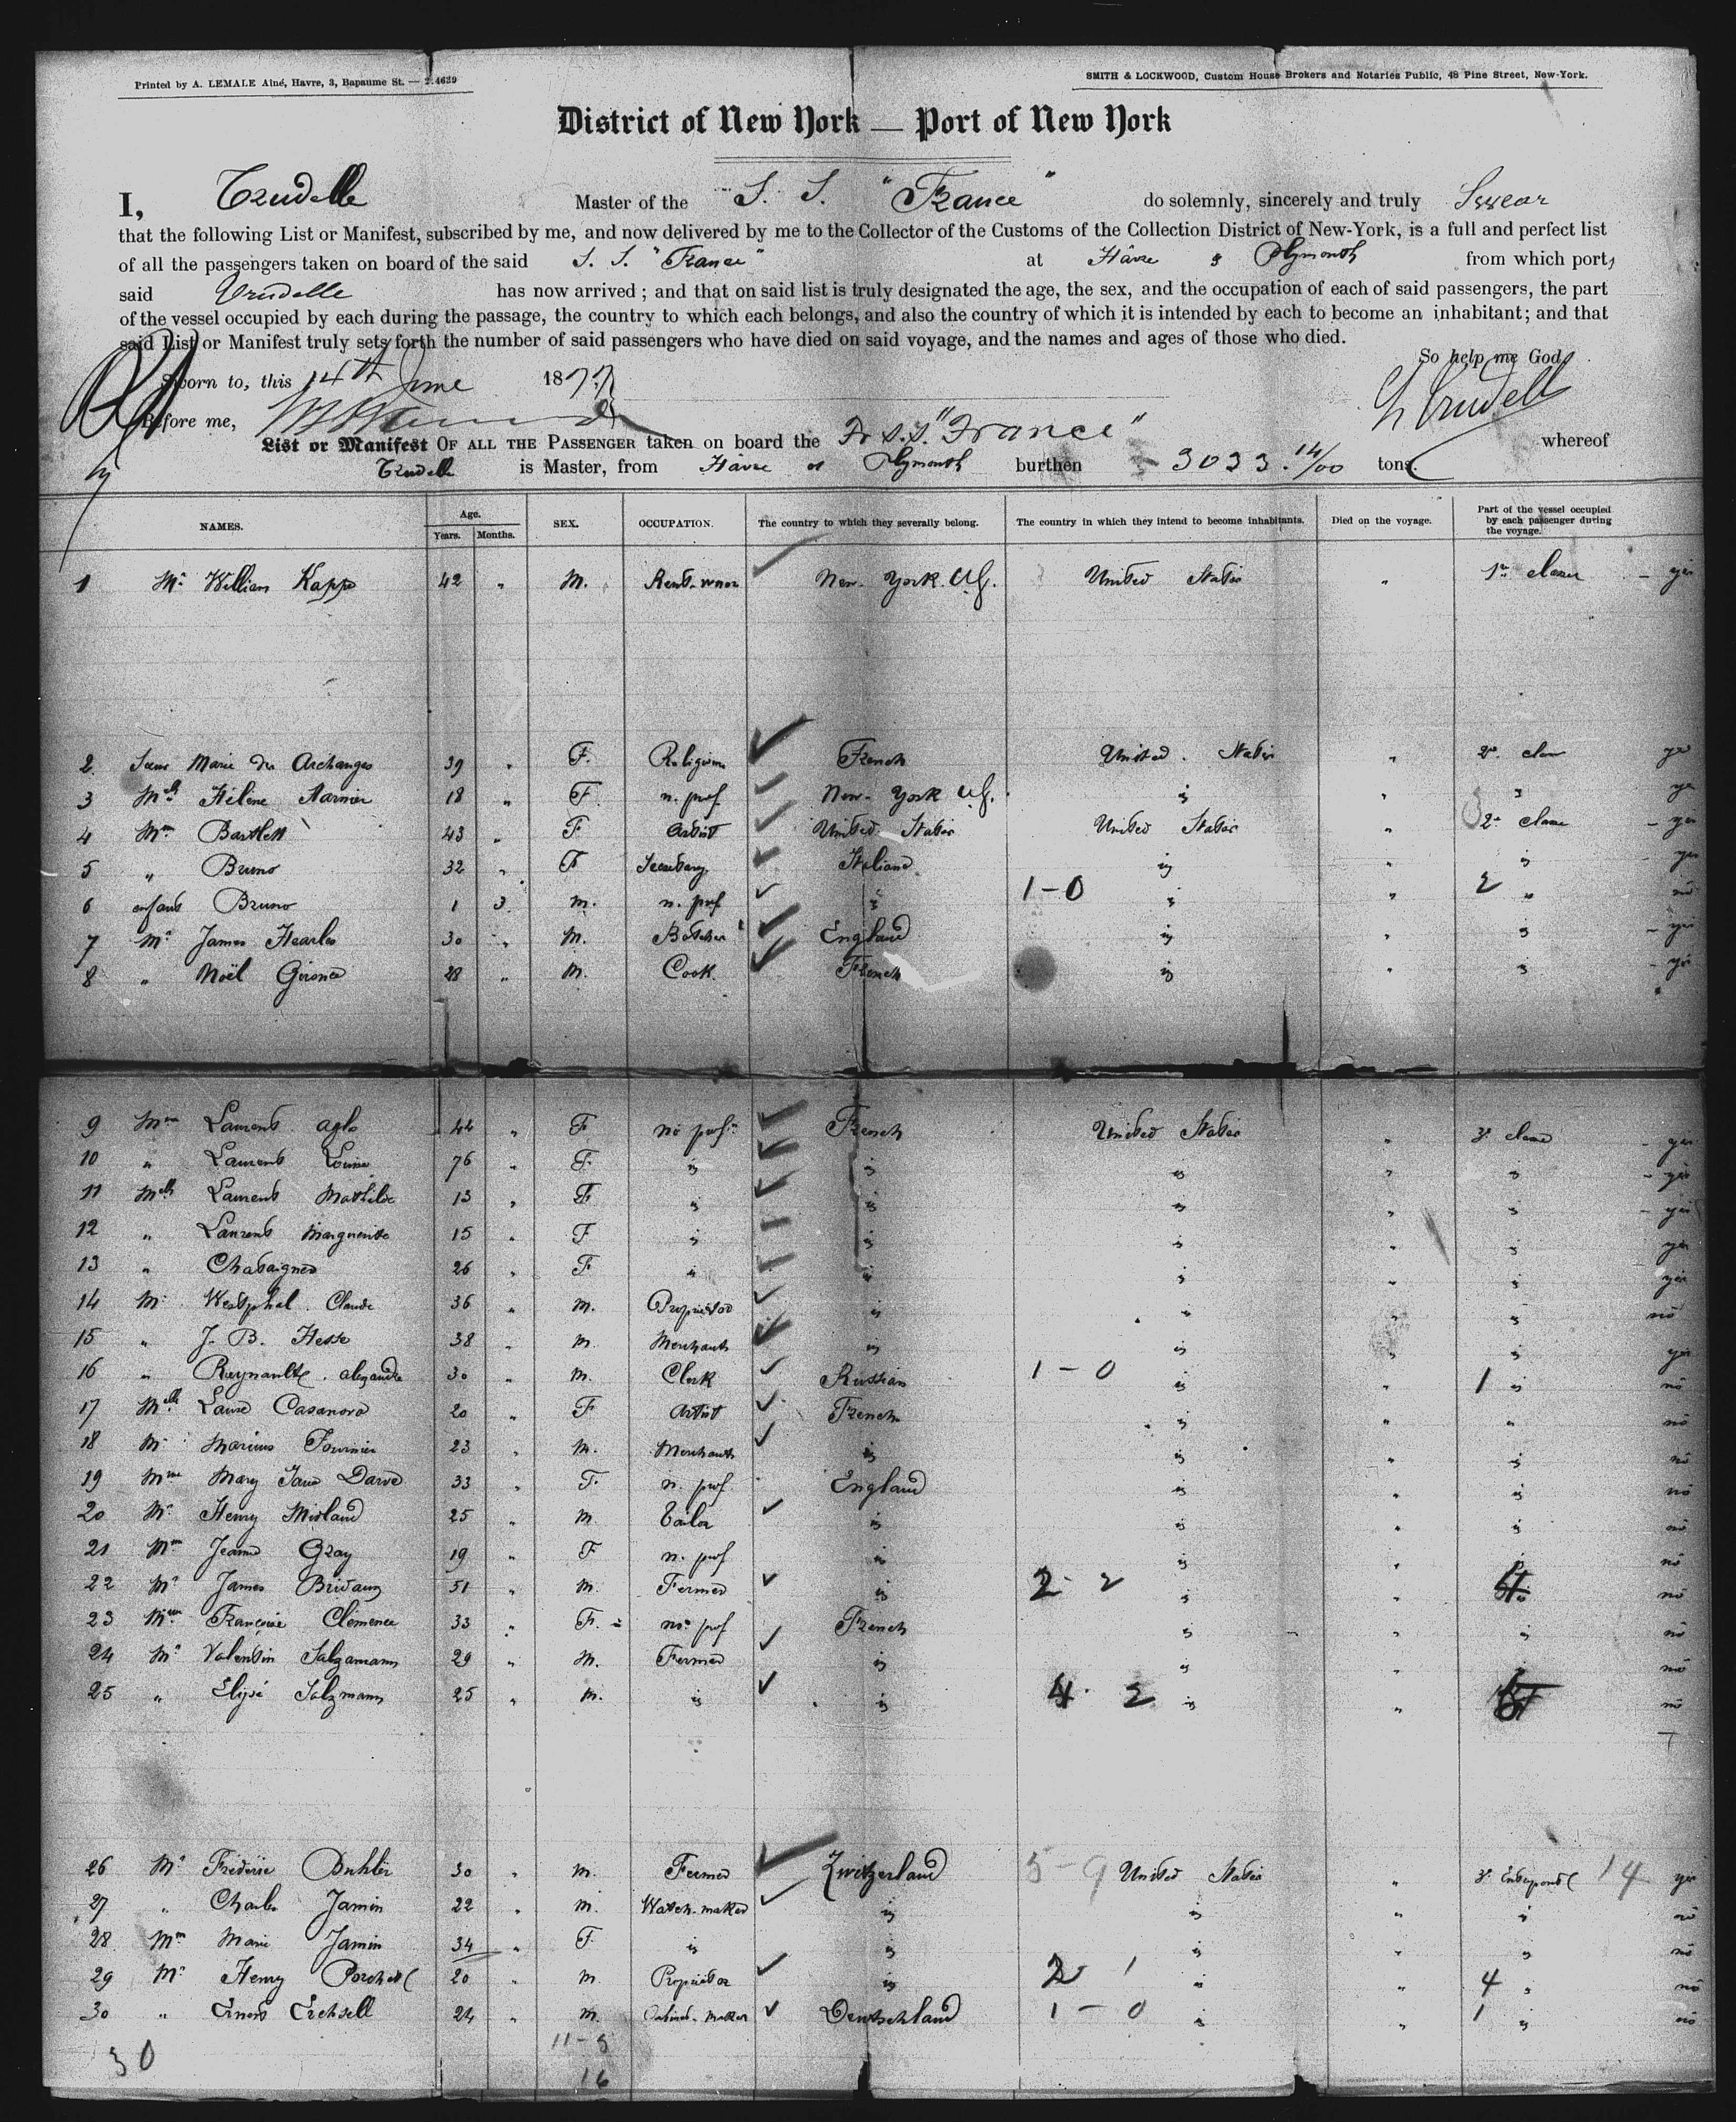 Printed by A. LEMALE Aîné, Havre, 3, Bapaume St. — 2.4629
SMITH & LOCKWOOD, Custom House Brokers and Notaries Public, 48 Pine Street, New-York.
District of New York — Port of New York
I, Trudelle Master of the S. S. "France" do solemnly, sincerely and truly Swear
that the following List or Manifest, subscribed by me, and now delivered by me to the Collector of the Customs of the Collection District of New-York, is a full and perfect list
of all the passengers taken on board of the said S. S. "France" at Hâvre & Plymouth from which port,
said Trudelle has now arrived ; and that on said list is truly designated the age, the sex, and the occupation of each of said passengers, the part
of the vessel occupied by each during the passage, the country to which each belongs, and also the country of which it is intended by each to become an inhabitant; and that
said List or Manifest truly sets forth the number of said passengers who have died on said voyage, and the names and ages of those who died.
So help me God
Sworn to, this 14th June 1877
Trudelle
Before me,
List or Manifest OF ALL THE PASSENGER taken on board the Fr S.S. "France" whereof
Trudelle is Master, from Hâvre et Plymouth burthen 3033.14/00 tons.
NAMES. Age. Years. Months. SEX. OCCUPATION. The country to which they severally belong. The country in which they intend to become inhabitants. Died on the voyage. Part of the vessel occupied by each passenger during the voyage.
1 Mr William Kapp 42 " M. New-York United States " 1re classe - yes
2. Soeur Marie des Archanges 39 " F. Religieuse French United States " 2e classe yes
3 Melle Hélène 18 " F. n. prof New-York " " " yes
4 Mme Bartlett 43 " F Artist United States United States " 2e classe - yes
5 " Bruno 32 " F Italian " " " yes
6 enfant Bruno 1 3 m. n. prof " 1-0 " " 2 " no
7 Mr James 30 " M. England " " " - yes
8 " Noël 28 " M. Cook French " " " - yes
9 Mme Laurent 44 " F no profn French United States " 3e classe - yes
10 " Laurent Louise 76 " F. " " " " " - yes
11 Melle Laurent Mathilde 13 " F. " " " " " - yes
12 " Laurent Marguerite 15 " F " " " " " yes
13 " 26 " F " " " " " yes
14 Mr Westphal. Claude 36 " m. Proprietor " " " " no
15 " J. B. Hesse 38 " m. Merchant " " " " yes
16 " Alexandre 30 " m. Clerk Russian 1-0 " " 1 " no
17 Melle Laure Casanova 20 " F Artist French " " " no
18 Mr Marius Fournier 23 " m. Merchant " " " " no
19 Mme Mary Jane 33 " F. n. prof England " " " no
20 Mr Henry 25 " m. Tailor " " " " no
21 Mme Jeanne Gray 19 " F n. prof " " " " no
22 Mr James 51 " m. Farmer " 2-2 " " 4 no
23 Mme Françoise Clémence 33 " F. no prof French " " " no
24 Mr Valentin Salzmann 29 " M. Farmer " " " no
25 " Salzmann 25 " m. " " 4 2 " " no
26 Mr Frédéric Buhler 30 " m. Farmer Zwitzerland 5-9 United States " 3e Entrepont 14 yes
27 " Charles Jamin 22 " m. Watch-maker " " " " no
28 Mme Marie Jamin 34 " F. " " " " " no
29 Mr Henry 20 " m. Proprietor " 2 1 " " 4 " no
30 " 24 " m. Cabinet-maker Deutschland 1-0 " " 1 " no
30
11-5
16